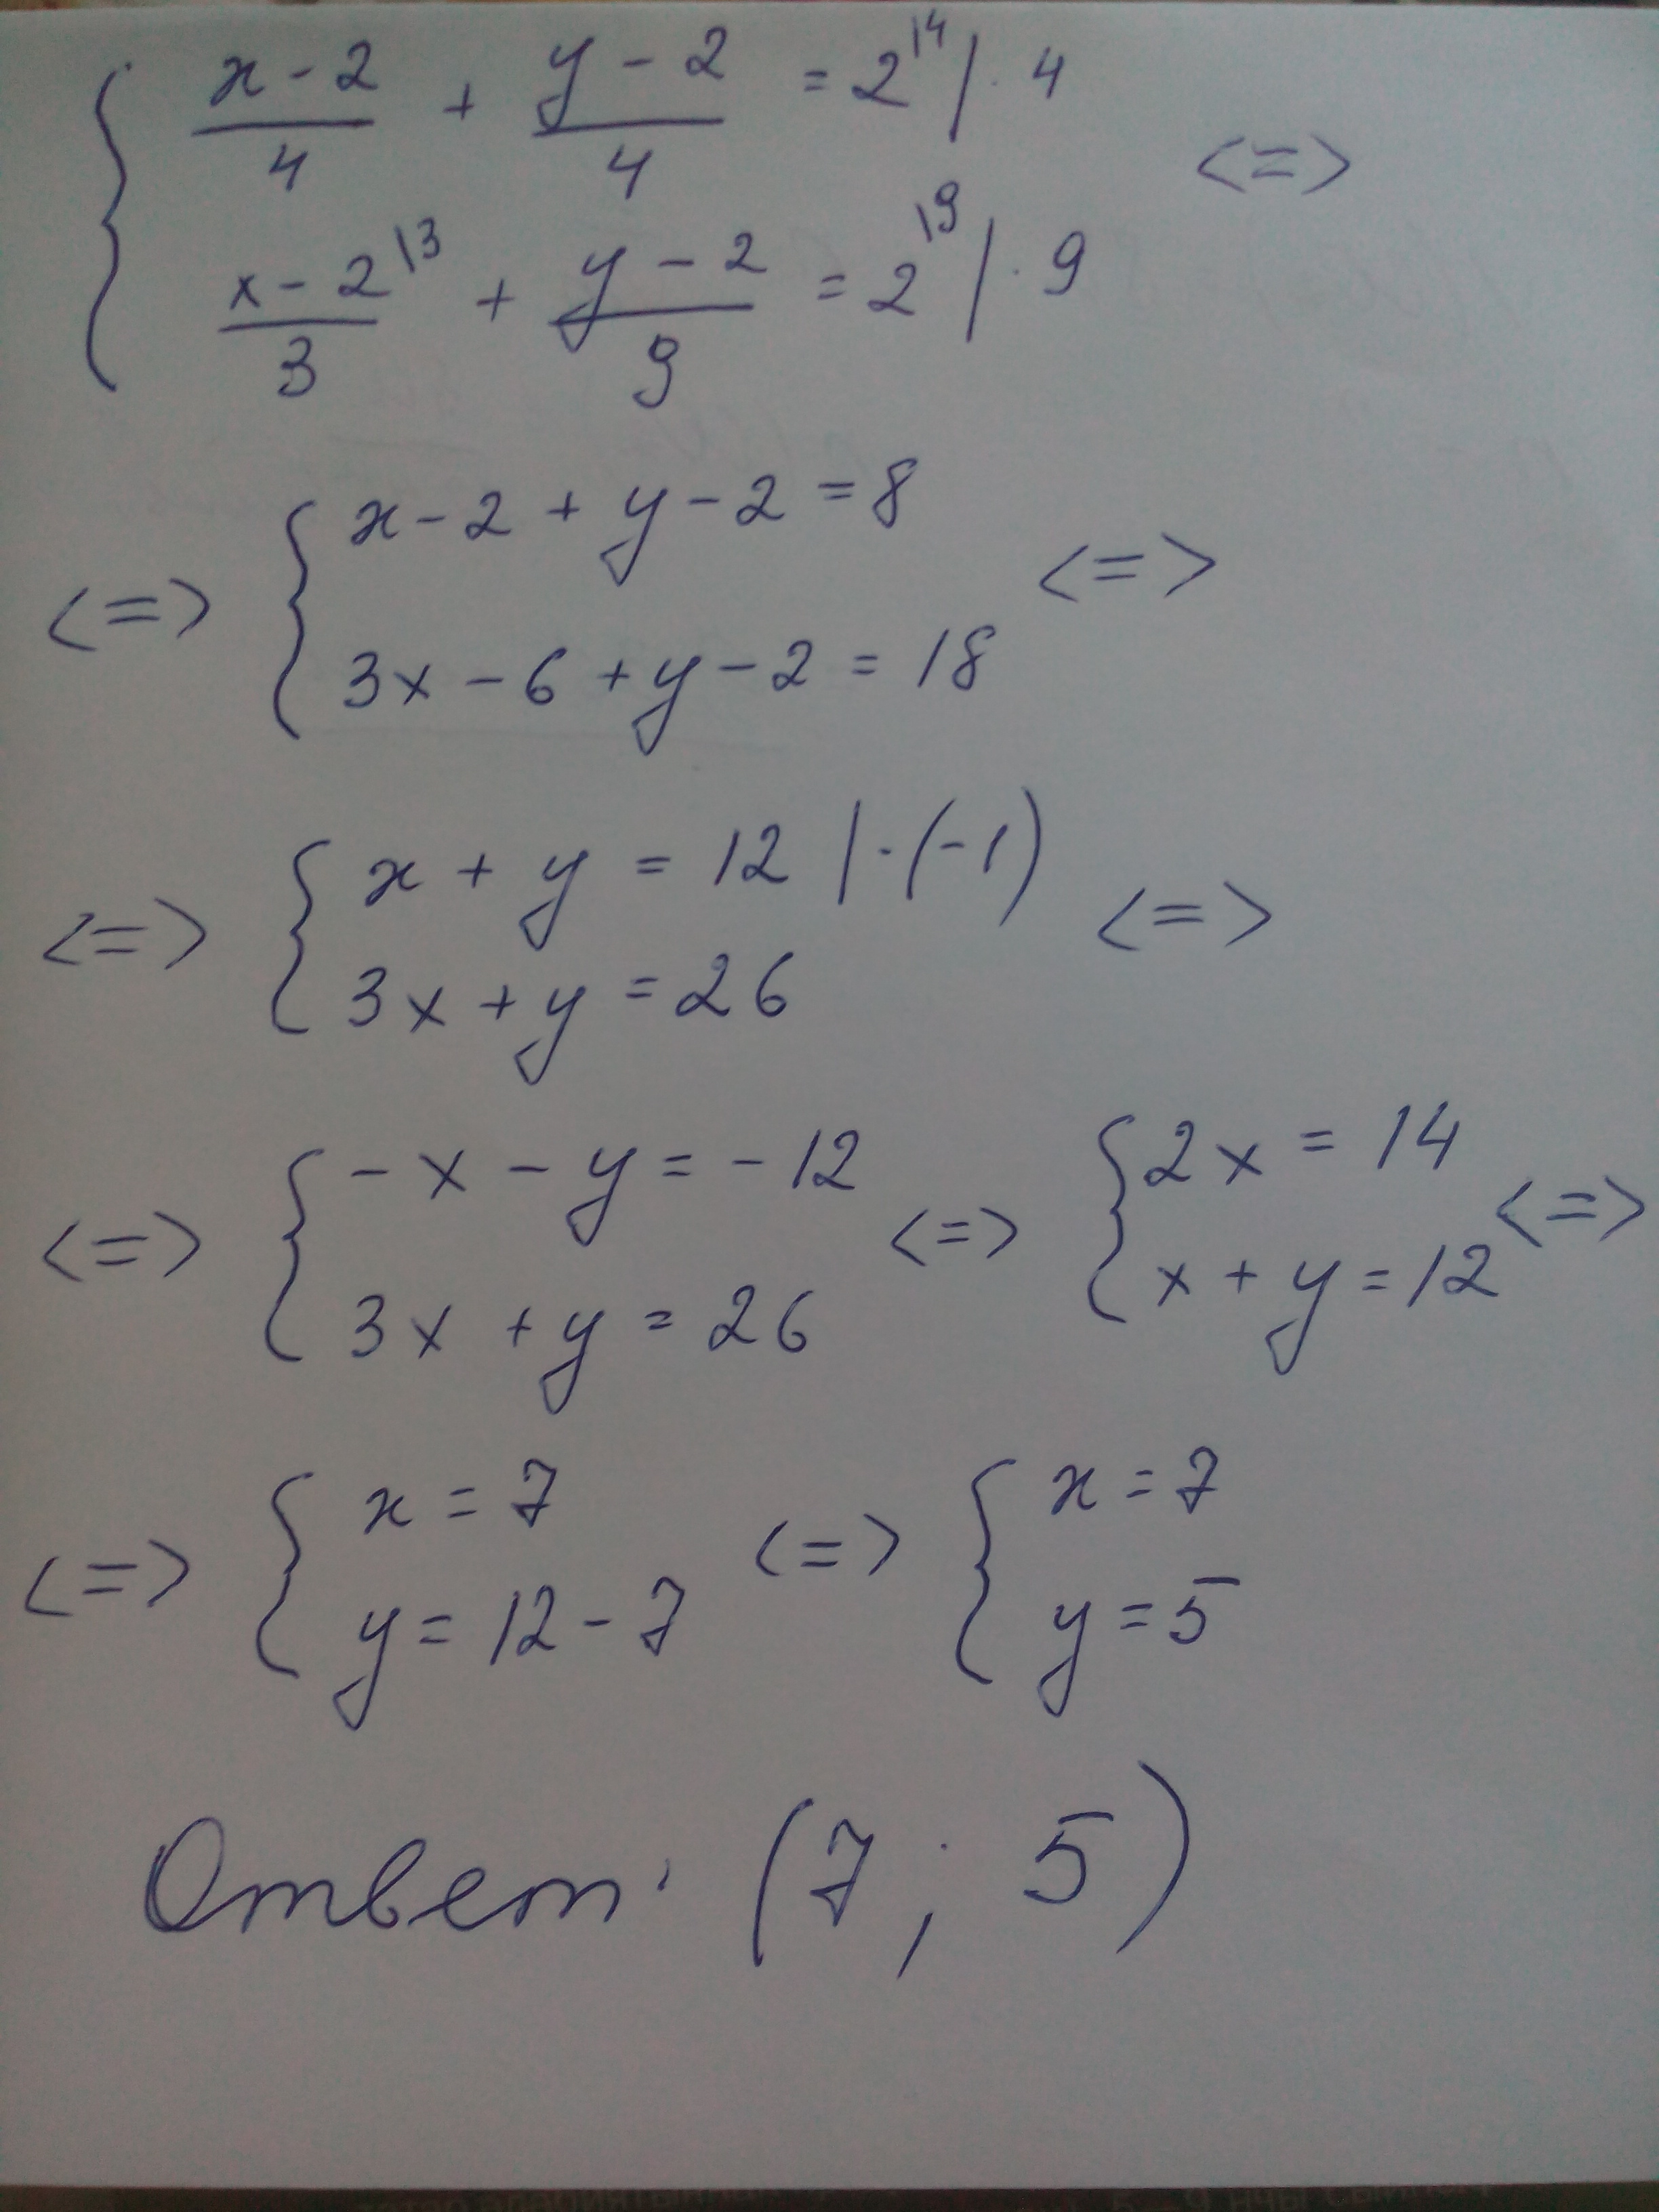 { (x-2)/4 + (y-2)/4 = 2^{\4} | · 4
{ (x-2)^{\3}/3 + (y-2)/9 = 2^{\9} | · 9 <=>
<=> { x-2 + y-2 = 8
{ 3x-6+y-2 = 18 <=>
<=> { x + y = 12 | · (-1)
{ 3x+y = 26 <=>
<=> { -x - y = -12 <=> { 2x = 14
{ 3x + y = 26 { x + y = 12 <=>
<=> { x = 7 <=> { x = 7
{ y = 12 - 7 { y = 5
Ответ: (7; 5)